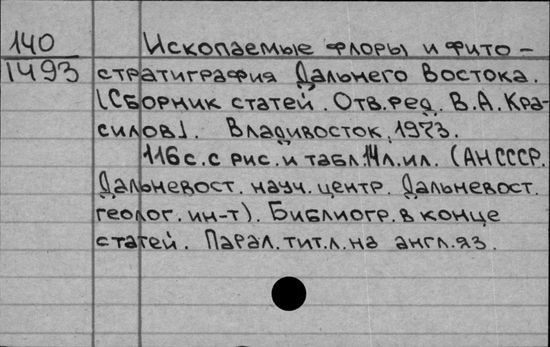 140
1493
Ископаемые флоры и фито-
стратиграфия Дальнего Востока.
[Сборник статей. Отв. ред. В.А. Кра-
силов]. Владивосток, 1973.
116 с. с рис. и табл. 14 л. ил. (АН СССР.
Дальневост. науч. центр. Дальневост.
геолог. ин-т). Библиогр. в конце
статей. Парал. тит. л. на англ. яз.